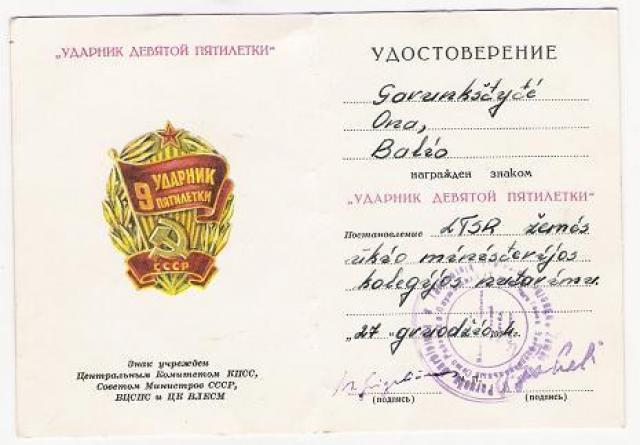 „УДАРНИК ДЕВЯТОЙ ПЯТИЛЕТКИ“
9 УДАРНИК
ПЯТИЛЕТКИ
СССР
Знак учрежден
Центральным Комитетом КПСС,
Советом Министров СССР,
ВЦСПС и ЦК ВЛКСМ
УДОСТОВЕРЕНИЕ
Garunkštytė
Ona,
Balio
награжден знаком
„УДАРНИК ДЕВЯТОЙ ПЯТИЛЕТКИ“
Постановление LTSR žemės
ūkio ministerijos
kolegijos nutarimu.
„27 gruodžio
(подпись) (подпись)